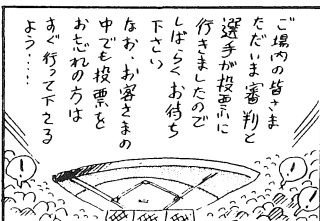 ご場内の皆さま
ただいま審判と
選手が投票に
行きましたので
しばらくお待ち
下さい
なお、お客さまの
中でも投票を
お忘れの方は
すぐ行って下さる
よう・・・
!
!